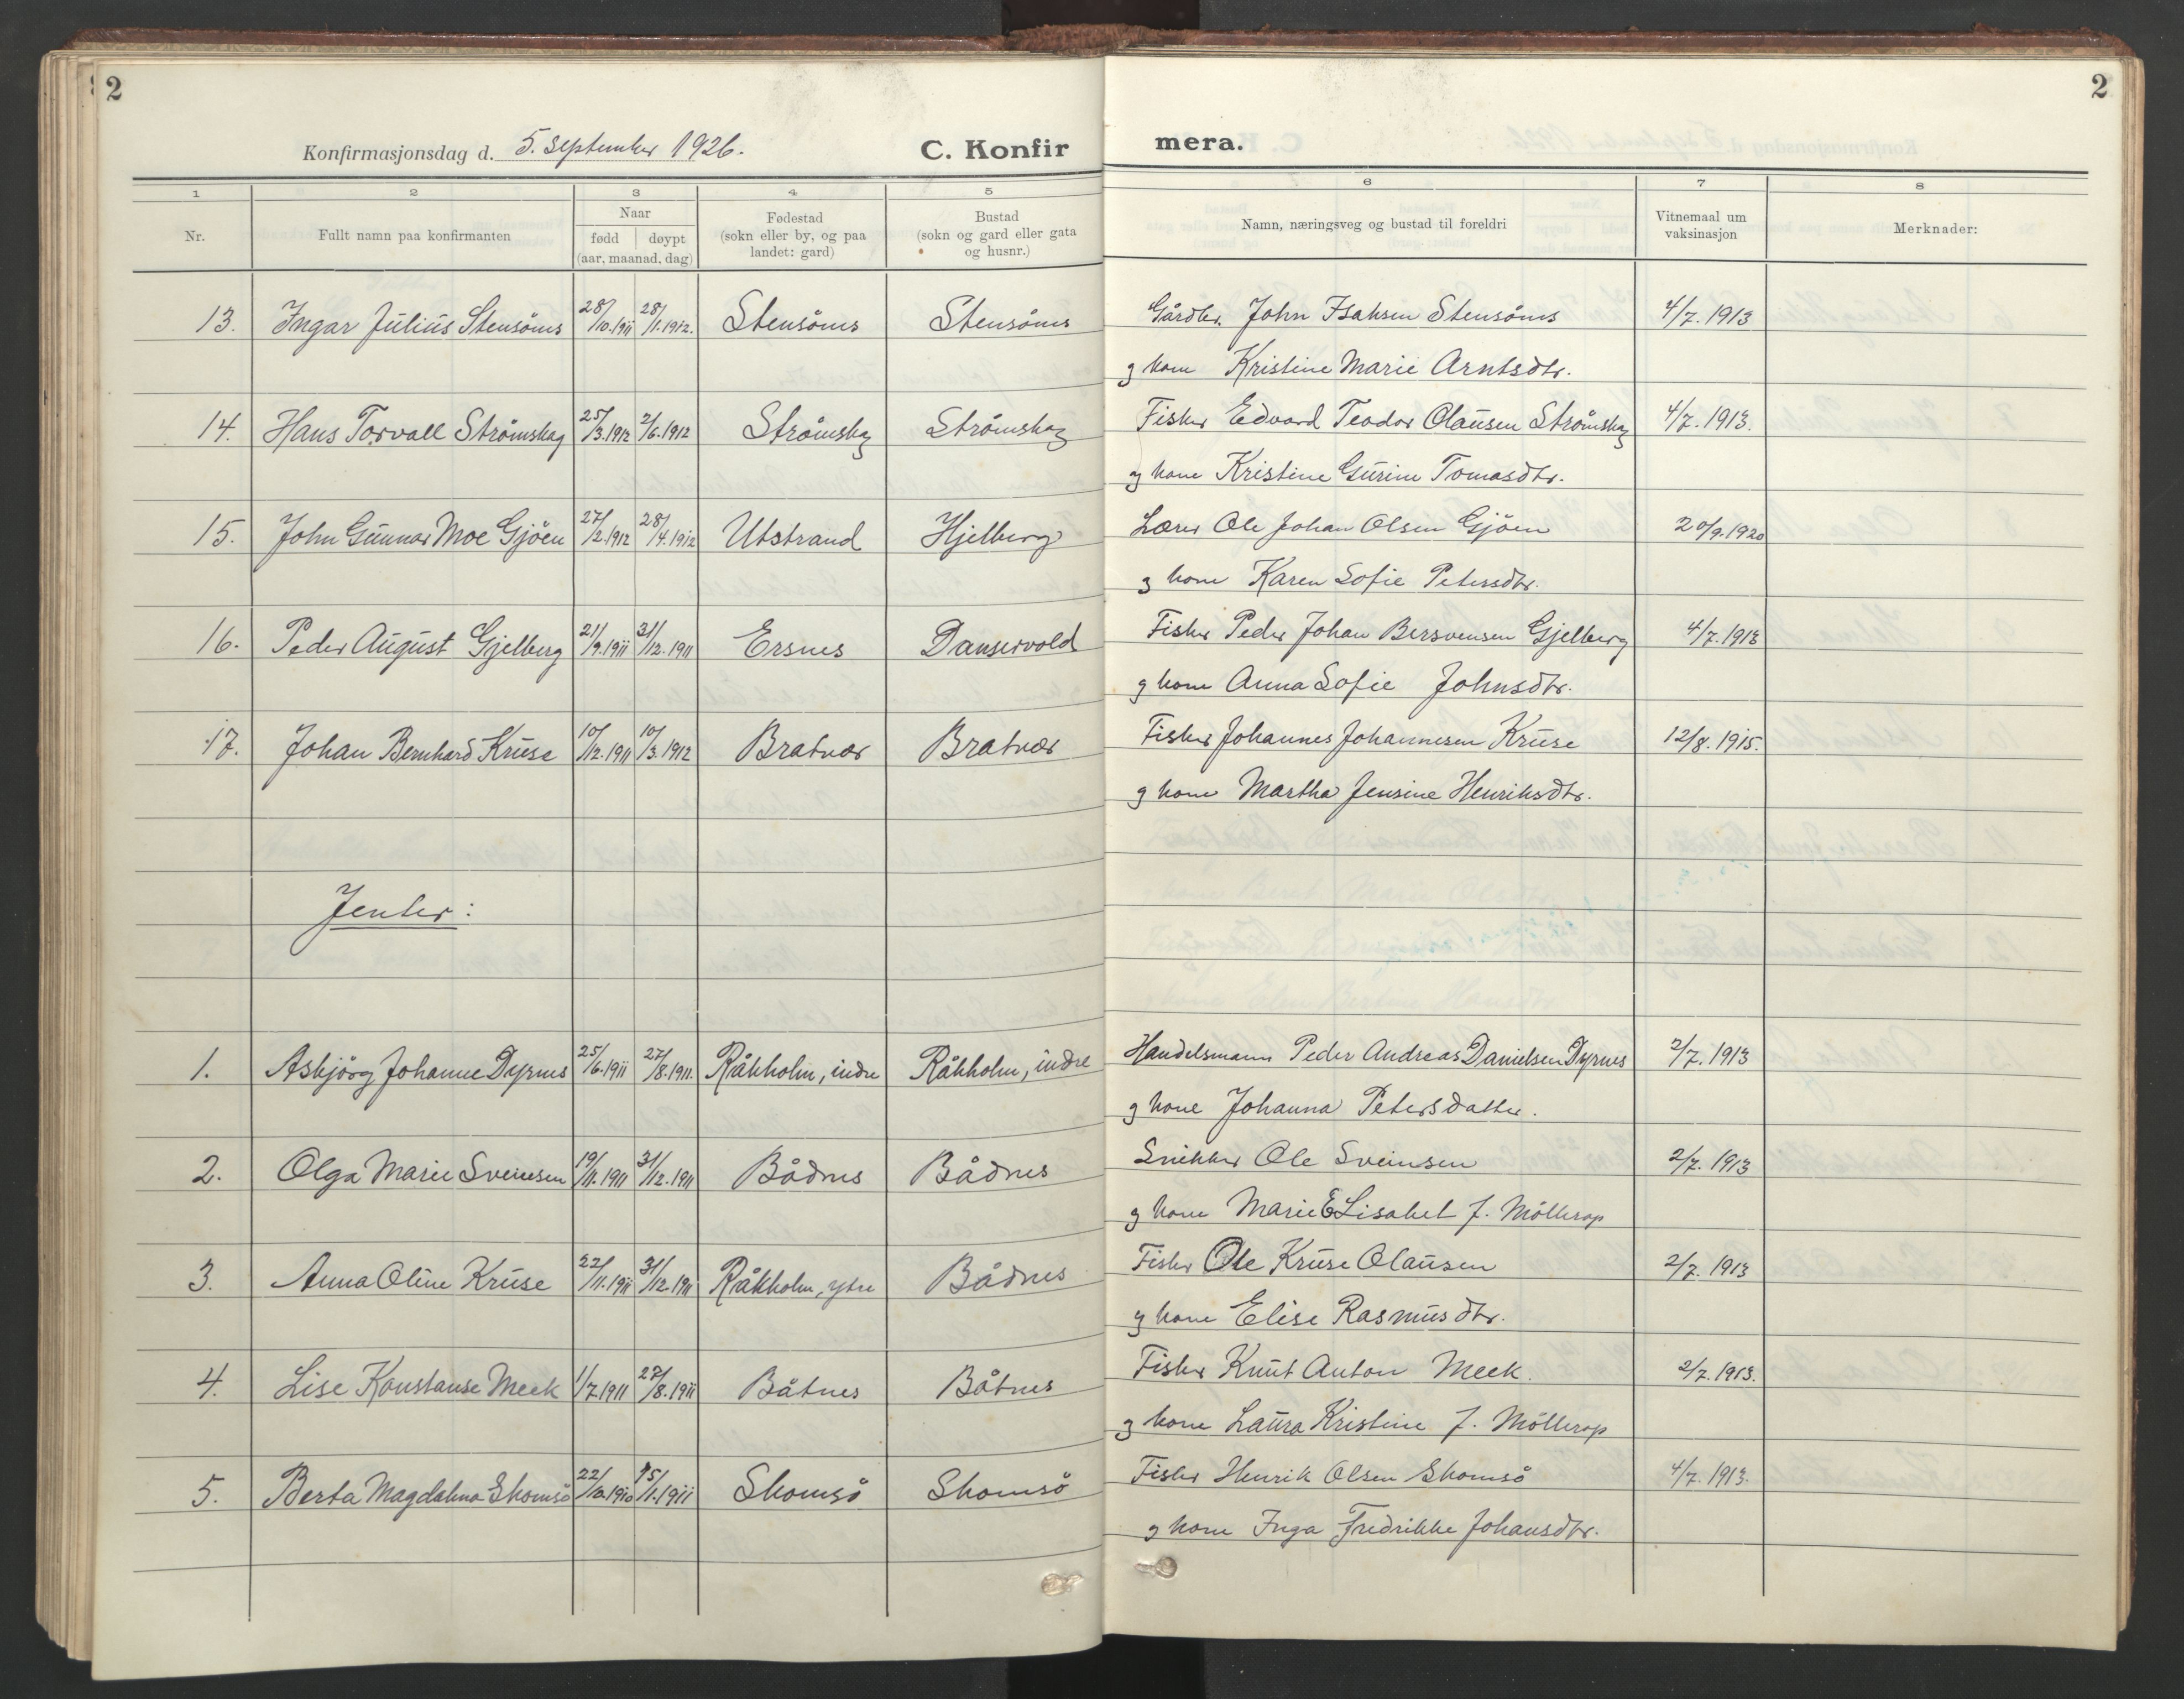 2
Konfirmasjonsdag d. 5. september 1926.
C. Konfir
mera.
2
1 2 3 4 5 6 7 8
Nr.
Fullt namn paa konfirmanten
Naar
fødd døypt
(aar, maanad, dag)
Fødestad
(sokn eller by, og paa
landet: gard)
Bustad
(sokn og gard eller gata
og husnr.)
Namn, næringsveg og bustad til foreldri
Vitnemaal um
vaksinasjon
Merknader:
13. Ingar Julius Stensöms 28/10.1911 28/1.1912. Stensöms Stensöms Gårdbr. John Isaksen Stensöms 4/7.1913
g kone Kristine Marie Arntsdtr.
14. Hans Torvall Strömskag 25/3.1912 2/6.1912 Strömskag Strömskag Fisker Edvard Teodor Olausen Strömskag 4/7.1913.
og kone Kristine Gurine Tomasdtr.
15. John Gunnar Moe Gjöen 27/2.1912 28/4.1912 Utstrand Hjelberg Lærer Ole Johan Olsen Gjöen 20/9.1920
g kone Karen Sofie Petersdtr.
16. Peder August Gjelberg 21/9.1911 31/12.1911 Ersnes Danservold Fisker Peder Johan Bersvensen Gjelberg 4/7.1913
g kone Anna Sofie Johnsdtr.
17. Johan Bernhard Kruse 10/12.1911 10/3.1912 Bratvær Bratvær Fisker Johannes Johannesen Kruse 12/8.1915.
g kone Martha Jensine Henriksdtr.
Jenter:
1. Asbjörg Johanne Dyrnes 25/6.1911 27/8.1911. Råkholm, indre Råkholm, indre Handelsmann Peder Andreas Danielsen Dyrnes 2/7.1913
g kone Johanna Petersdatter.
2. Olga Marie Sveinsen 19/11.1911 31/12.1911 Bådnes Bådnes Snikker Ole Sveinsen 2/7.1913
g kone Marie Elisabet J. Möllerop
3. Anna Oline Kruse 22/11.1911 31/12.1911 Råkholm, ytre Bådnes Fisker Ole Kruse Olausen 2/7.1913
g kone Elise Rasmusdtr.
4. Lise Konstanse Meek 1/7.1911 27/8.1911 Båtnes Båtnes Fisker Knut Anton Meek. 2/7.1913.
g kone Laura Kristine J. Möllerop
5. Berta Magdalena Skomsö 22/10.1910 15/1.1911 Skomsö Skomsö Fisker Henrik Olsen Skomsö 4/7.1913.
g kone Inga Fredrikke Johansdtr.